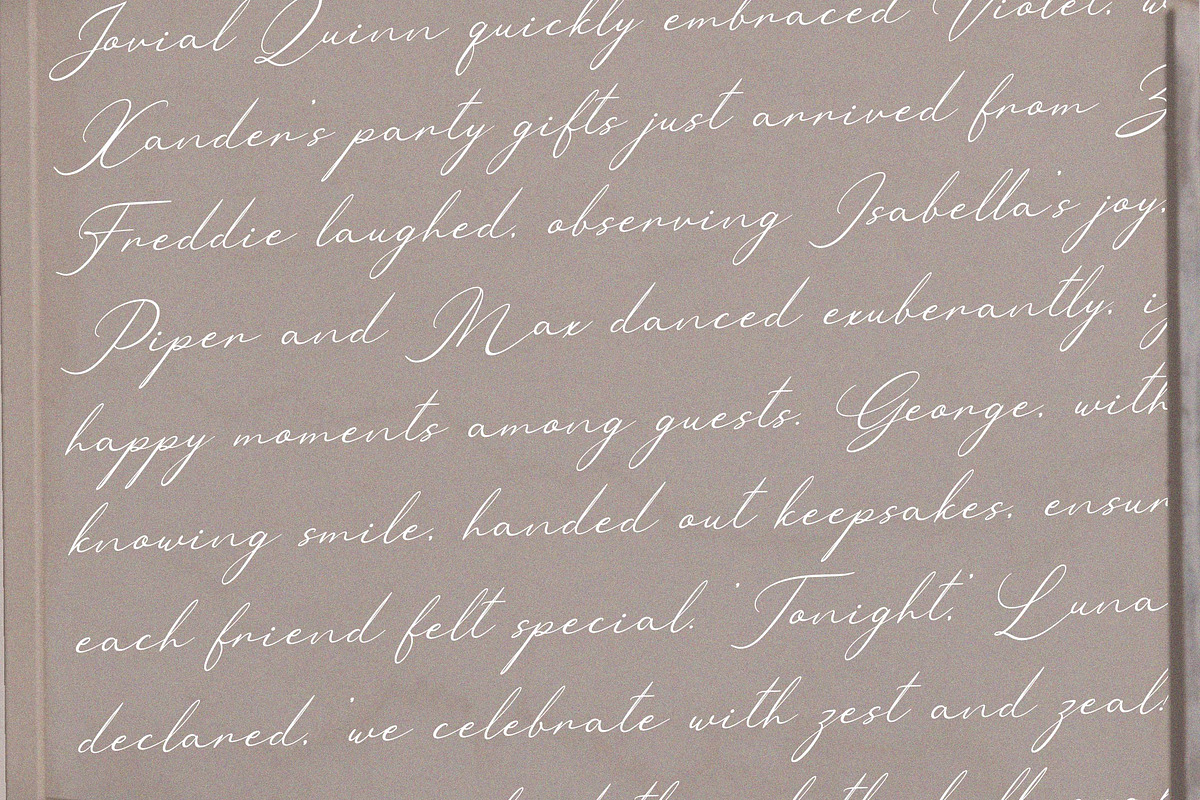 Jovial Quinn quickly embraced Violet. w
Xander's party gifts just arrived from Z
Freddie laughed. observing Isabella's joy.
Piper and Max danced exuberantly. ig
happy moments among guests. George. with
knowing smile. handed out keepsakes. ensur
each friend felt special. 'Tonight.' Luna
declared. 'we celebrate with zest and zeal!